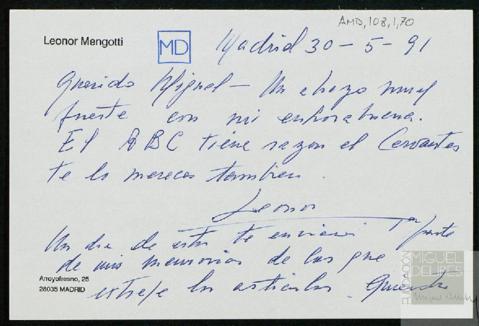 AMD,108,1,70
Leonor Mengotti
MD
Madrid 30-5-91
Querido Miguel - Un abrazo muy
fuerte con mi enhorabuena.
El ABC tiene razon el Cervantes
te lo mereces tambien.
Leonor
Un dia de estos te enviaré 1ª parte
de mis memorias de las que
extraje los articulos.
Arroyofresno, 25
28035 MADRID
MIGUEL
DELIBES